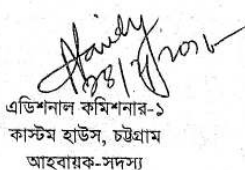 এডিশনাল কমিশনার-১
কাস্টম হাউস, চট্টগ্রাম
আহবায়ক-সদস্য